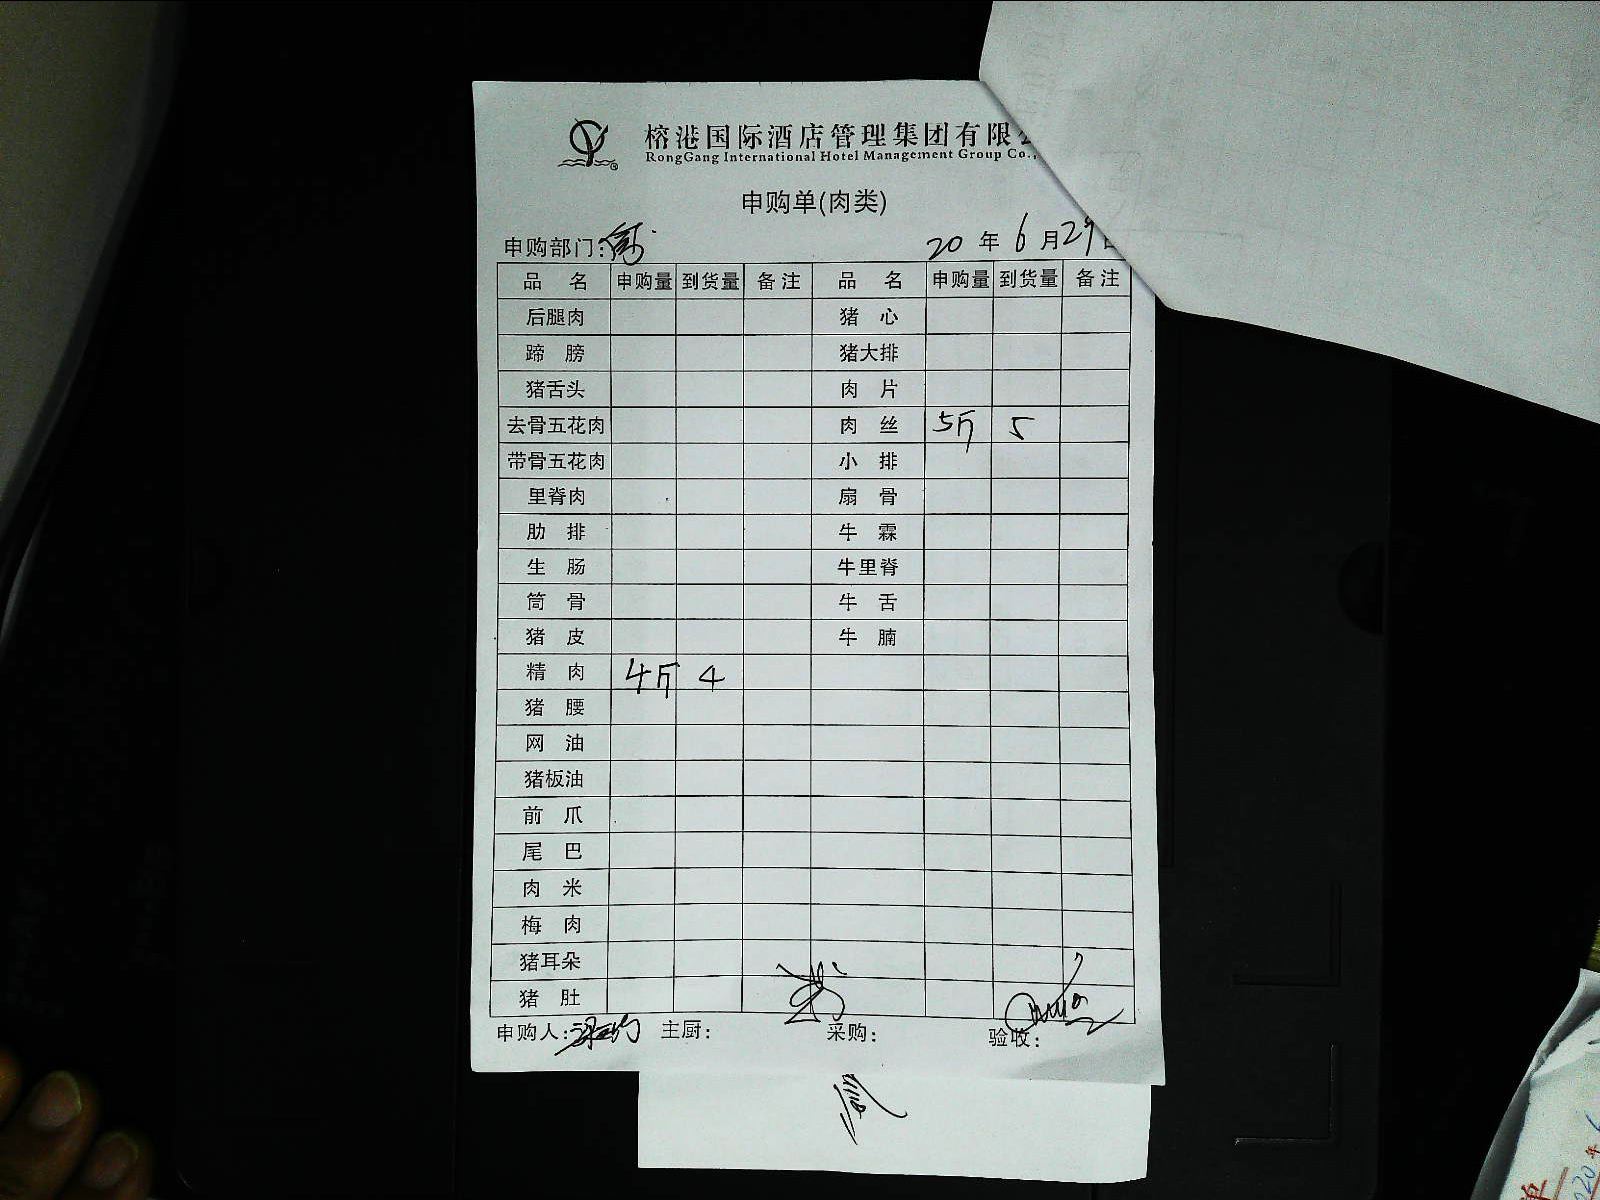 榕港国际酒店管理集团有限
RongGang International Hotel Management Group Co.,
申购单(肉类)
申购部门: 20 年 6 月 29 日
品 名 申购量 到货量 备注 品 名 申购量 到货量 备注
后腿肉 猪 心
蹄 膀 猪大排
猪舌头 肉 片
去骨五花肉 肉 丝 5斤 5
带骨五花肉 小 排
里脊肉 扇 骨
肋 排 牛 霖
生 肠 牛里脊
筒 骨 牛 舌
猪 皮 牛 腩
精 肉 4斤 4
猪 腰
网 油
猪板油
前 爪
尾 巴
肉 米
梅 肉
猪耳朵
猪 肚
申购人: 主厨: 采购: 验收: